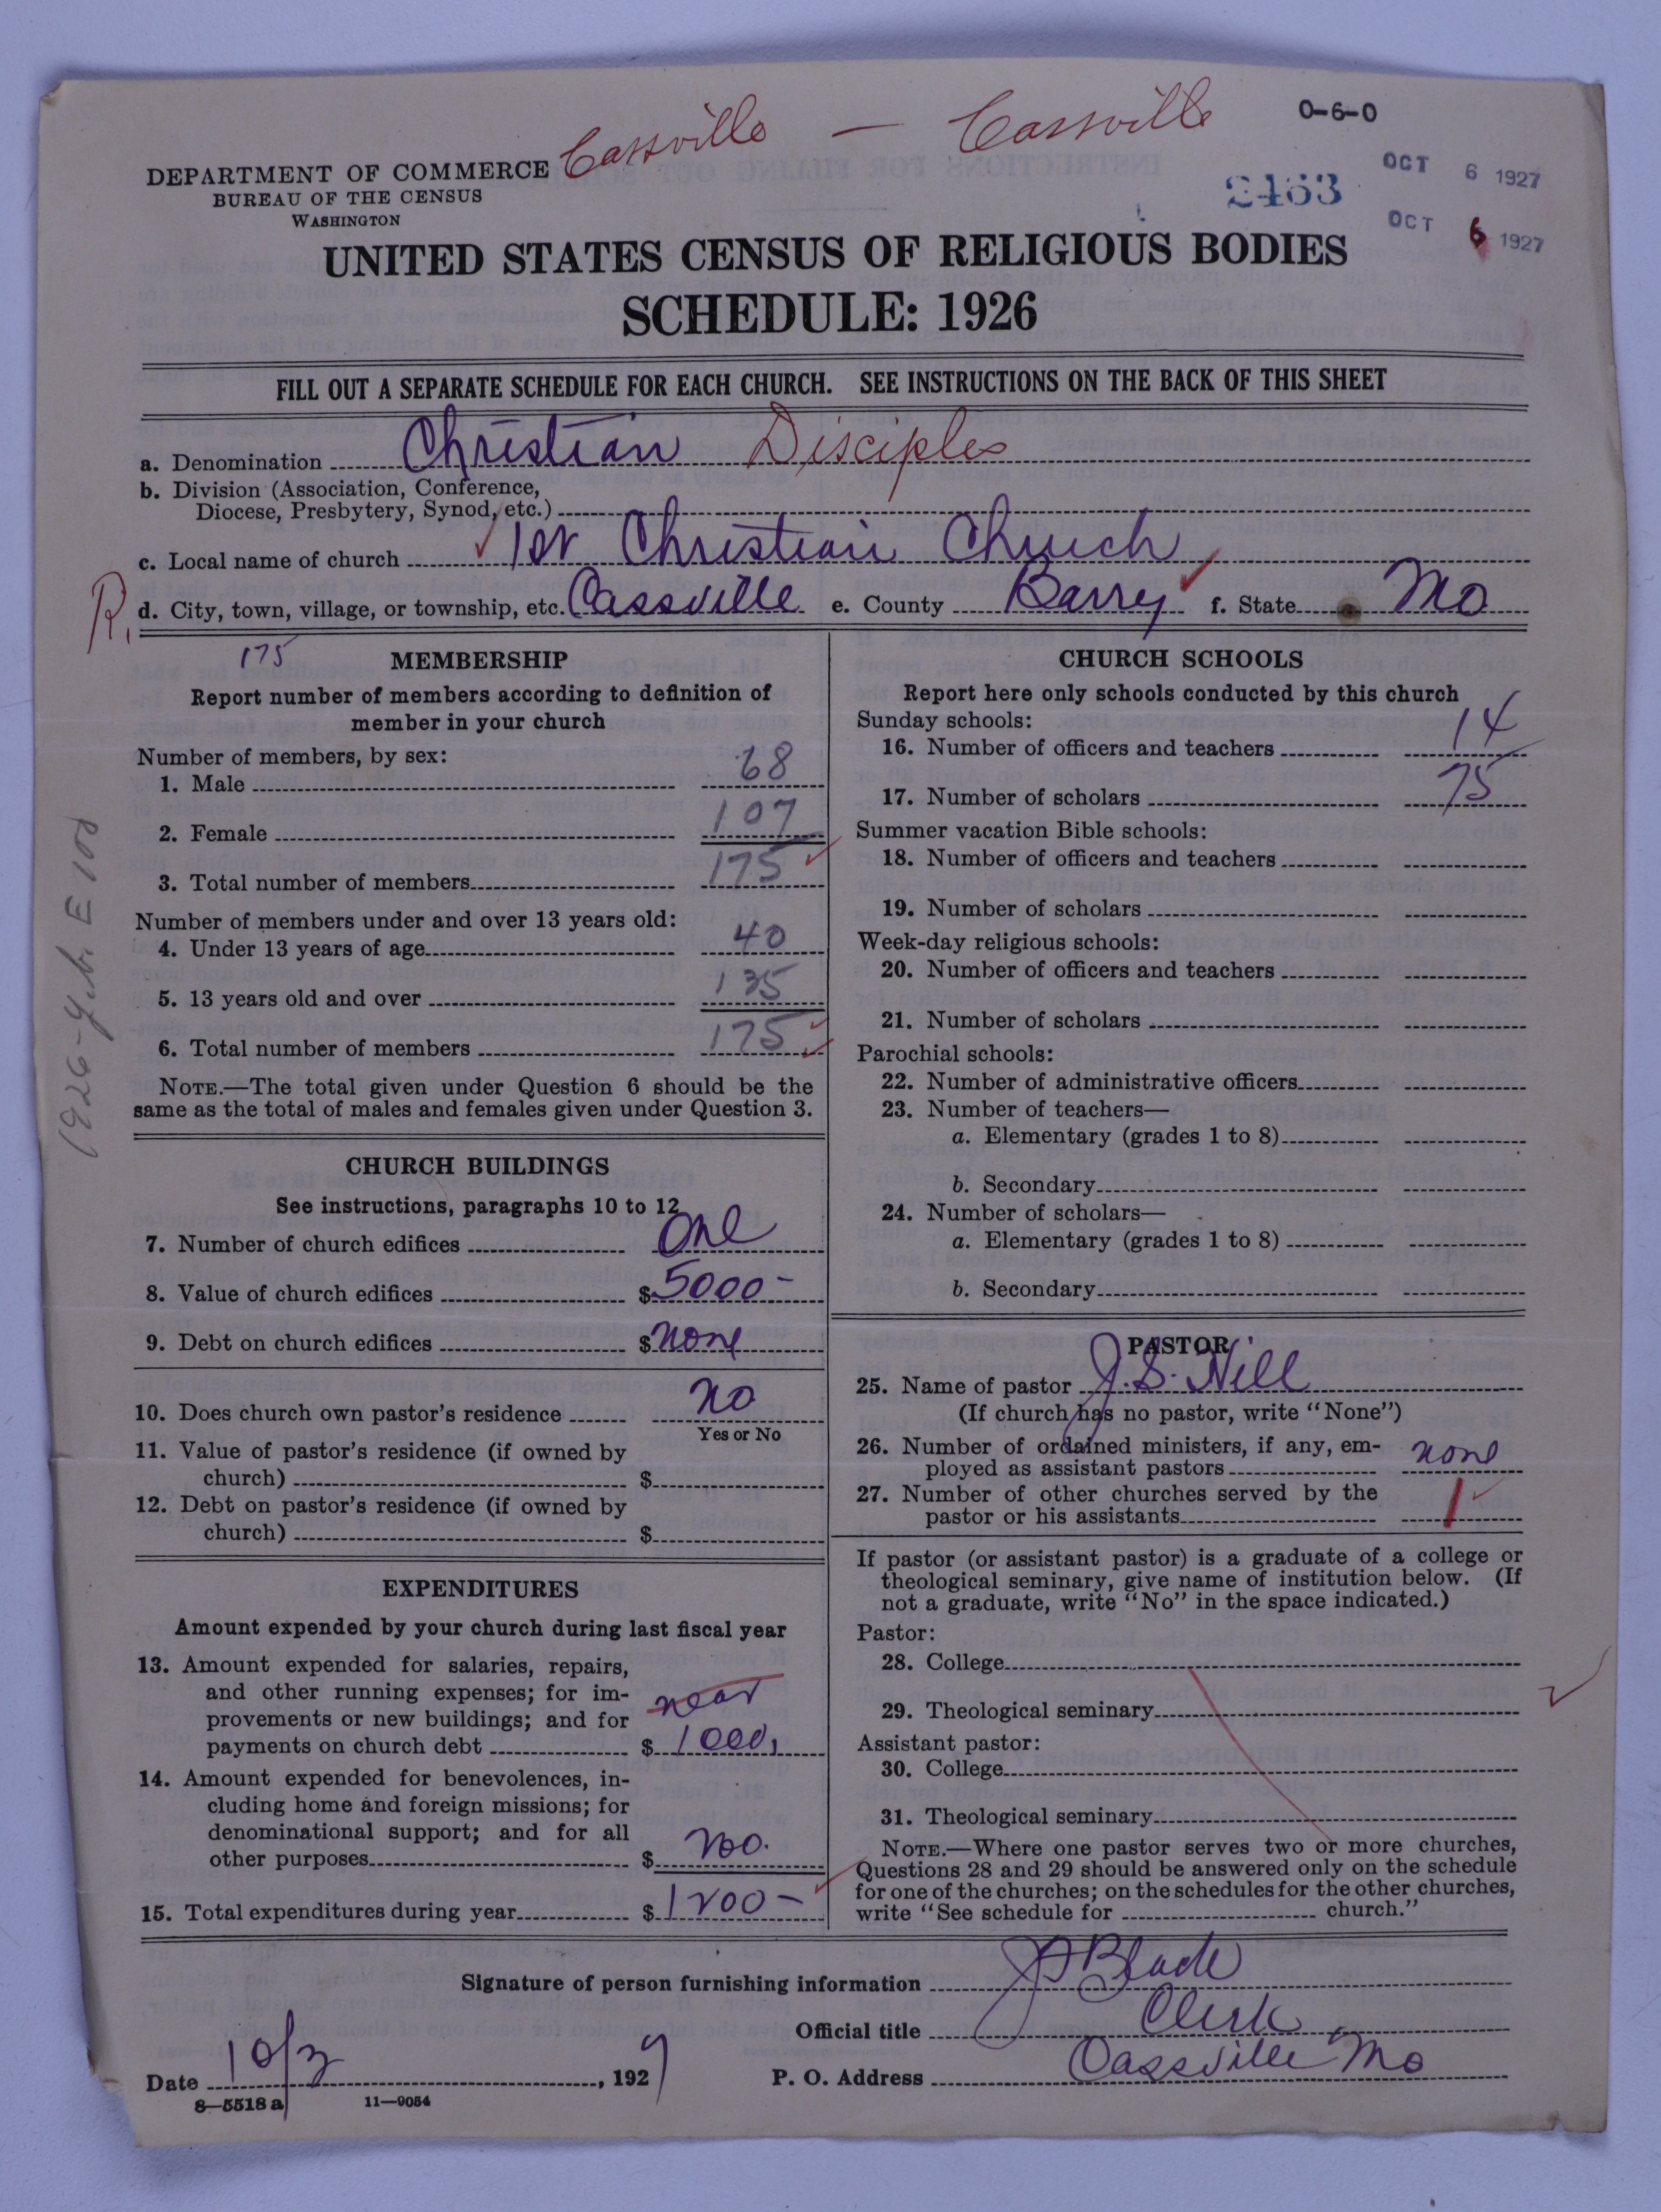 Cassville — Cassville
0-6-0
DEPARTMENT OF COMMERCE
BUREAU OF THE CENSUS
WASHINGTON
2463
OCT 6 1927
OCT 6 1927
UNITED STATES CENSUS OF RELIGIOUS BODIES
SCHEDULE: 1926
FILL OUT A SEPARATE SCHEDULE FOR EACH CHURCH. SEE INSTRUCTIONS ON THE BACK OF THIS SHEET
a. Denomination Christian Disciples
b. Division (Association, Conference,
Diocese, Presbytery, Synod, etc.)
c. Local name of church 1st Christian Church
R. d. City, town, village, or township, etc. Cassville e. County Barry f. State Mo
175
MEMBERSHIP
Report number of members according to definition of
member in your church
Number of members, by sex:
1. Male 68
2. Female 107
3. Total number of members 175
Number of members under and over 13 years old:
4. Under 13 years of age 40
5. 13 years old and over 135
6. Total number of members 175
NOTE.—The total given under Question 6 should be the
same as the total of males and females given under Question 3.
CHURCH BUILDINGS
See instructions, paragraphs 10 to 12
7. Number of church edifices One
8. Value of church edifices $5000-
9. Debt on church edifices $none
10. Does church own pastor's residence no
Yes or No
11. Value of pastor's residence (if owned by
church) $
12. Debt on pastor's residence (if owned by
church) $
EXPENDITURES
Amount expended by your church during last fiscal year
13. Amount expended for salaries, repairs,
and other running expenses; for im-
provements or new buildings; and for
near
payments on church debt $1000,
14. Amount expended for benevolences, in-
cluding home and foreign missions; for
denominational support; and for all
other purposes $200.
15. Total expenditures during year $1200-
CHURCH SCHOOLS
Report here only schools conducted by this church
Sunday schools:
16. Number of officers and teachers 14
17. Number of scholars 75
Summer vacation Bible schools:
18. Number of officers and teachers
19. Number of scholars
Week-day religious schools:
20. Number of officers and teachers
21. Number of scholars
Parochial schools:
22. Number of administrative officers
23. Number of teachers—
a. Elementary (grades 1 to 8)
b. Secondary
24. Number of scholars—
a. Elementary (grades 1 to 8)
b. Secondary
PASTOR
25. Name of pastor J. S. Hill
(If church has no pastor, write "None")
26. Number of ordained ministers, if any, em-
ployed as assistant pastors none
27. Number of other churches served by the
pastor or his assistants 1
If pastor (or assistant pastor) is a graduate of a college or
theological seminary, give name of institution below. (If
not a graduate, write "No" in the space indicated.)
Pastor:
28. College
29. Theological seminary
Assistant pastor:
30. College
31. Theological seminary
NOTE.—Where one pastor serves two or more churches,
Questions 28 and 29 should be answered only on the schedule
for one of the churches; on the schedules for the other churches,
write "See schedule for church."
Signature of person furnishing information
Official title Clerk
Date 10/3, 1927 P. O. Address Cassville Mo
8—5518 a 11—9054